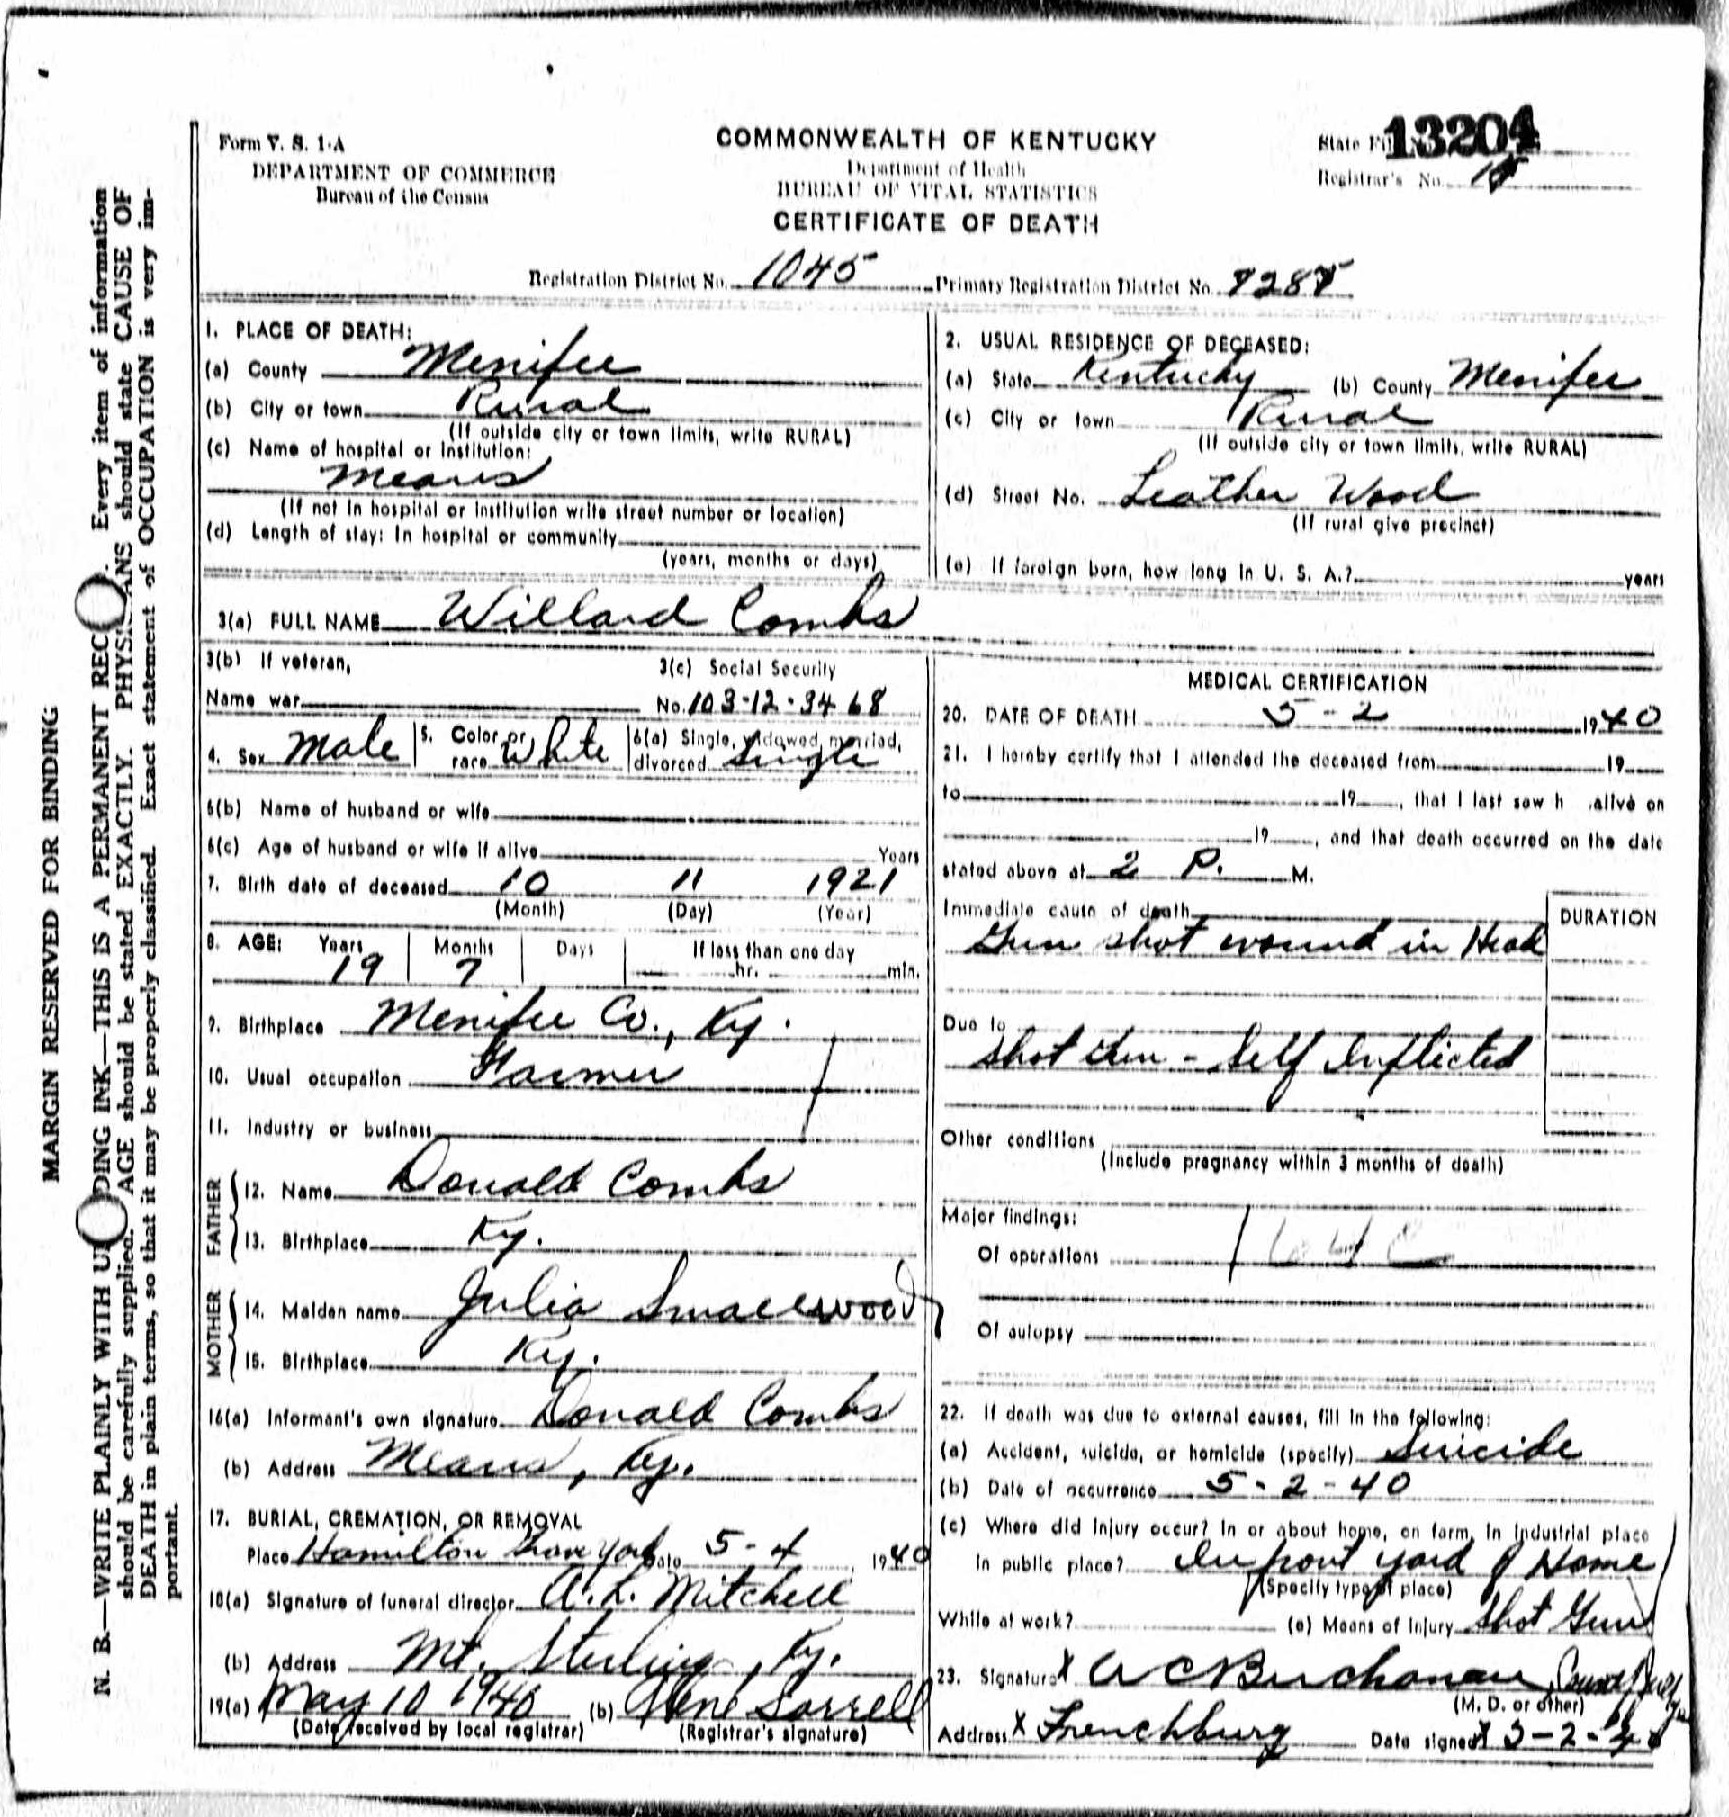 Form V. S. 1-A
DEPARTMENT OF COMMERCE
Bureau of the Census
COMMONWEALTH OF KENTUCKY
Department of Health
BUREAU OF VITAL STATISTICS
CERTIFICATE OF DEATH
State File 13204
Registrar's No.
Registration District No. 1045 Primary Registration District No.
MARGIN RESERVED FOR BINDING
N. B.—WRITE PLAINLY WITH U DING INK—THIS IS A PERMANENT REC . Every item of information
should be carefully supplied. AGE should be stated EXACTLY. PHYSIC ANS should state CAUSE OF
DEATH in plain terms, so that it may be properly classified. Exact statement of OCCUPATION is very im-
portant.
1. PLACE OF DEATH:
(a) County Menifee
(b) City or town Rural
(If outside city or town limits, write RURAL)
(c) Name of hospital or institution:
Means
(If not in hospital or institution write street number or location)
(d) Length of stay: In hospital or community
(years, months or days)
2. USUAL RESIDENCE OF DECEASED:
(a) State Kentucky (b) County Menifee
(c) City or town Rural
(If outside city or town limits, write RURAL)
(d) Street No. Leather Wood
(If rural give precinct)
(e) If foreign born, how long in U. S. A.? years
3(a) FULL NAME Willard Combs
3(b) If veteran,
Name war
3(c) Social Security
No. 103-12-3468
4. Sex Male 5. Color or race White 6(a) Single, widowed, married, divorced Single
6(b) Name of husband or wife
6(c) Age of husband or wife if alive Years
7. Birth date of deceased 10 11 1921
(Month) (Day) (Year)
8. AGE: Years Months Days If less than one day
19 7 hr. min.
9. Birthplace Menifee Co., Ky.
10. Usual occupation Farmer
11. Industry or business
FATHER
12. Name Donald Combs
13. Birthplace Ky.
MOTHER
14. Maiden name Julia Smallwood
15. Birthplace Ky.
16(a) Informant's own signature Donald Combs
(b) Address Means, Ky.
17. BURIAL, CREMATION, OR REMOVAL
Place Hamilton Grave yard Date 5-4 1940
18(a) Signature of funeral director A. L. Mitchell
(b) Address Mt. Sterling, Ky.
19(a) May 10 1940 (b) Sorrell
(Date received by local registrar) (Registrar's signature)
MEDICAL CERTIFICATION
20. DATE OF DEATH 5-2 1940
21. I hereby certify that I attended the deceased from 19
to 19 , that I last saw h alive on
19 , and that death occurred on the date
stated above at 2 P. M.
Immediate cause of death DURATION
Gun shot wound in Head
Due to
Shot Gun - Self Inflicted
Other conditions
(Include pregnancy within 3 months of death)
Major findings:
Of operations 164C
Of autopsy
22. If death was due to external causes, fill in the following:
(a) Accident, suicide, or homicide (specify) Suicide
(b) Date of occurrence 5-2-40
(c) Where did injury occur? In or about home, on farm, in industrial place
in public place? In front yard of Home
(Specify type of place)
While at work? (e) Means of Injury Shot Gun
23. Signature X A C Buchanan
(M. D. or other)
Address X Frenchburg Date signed